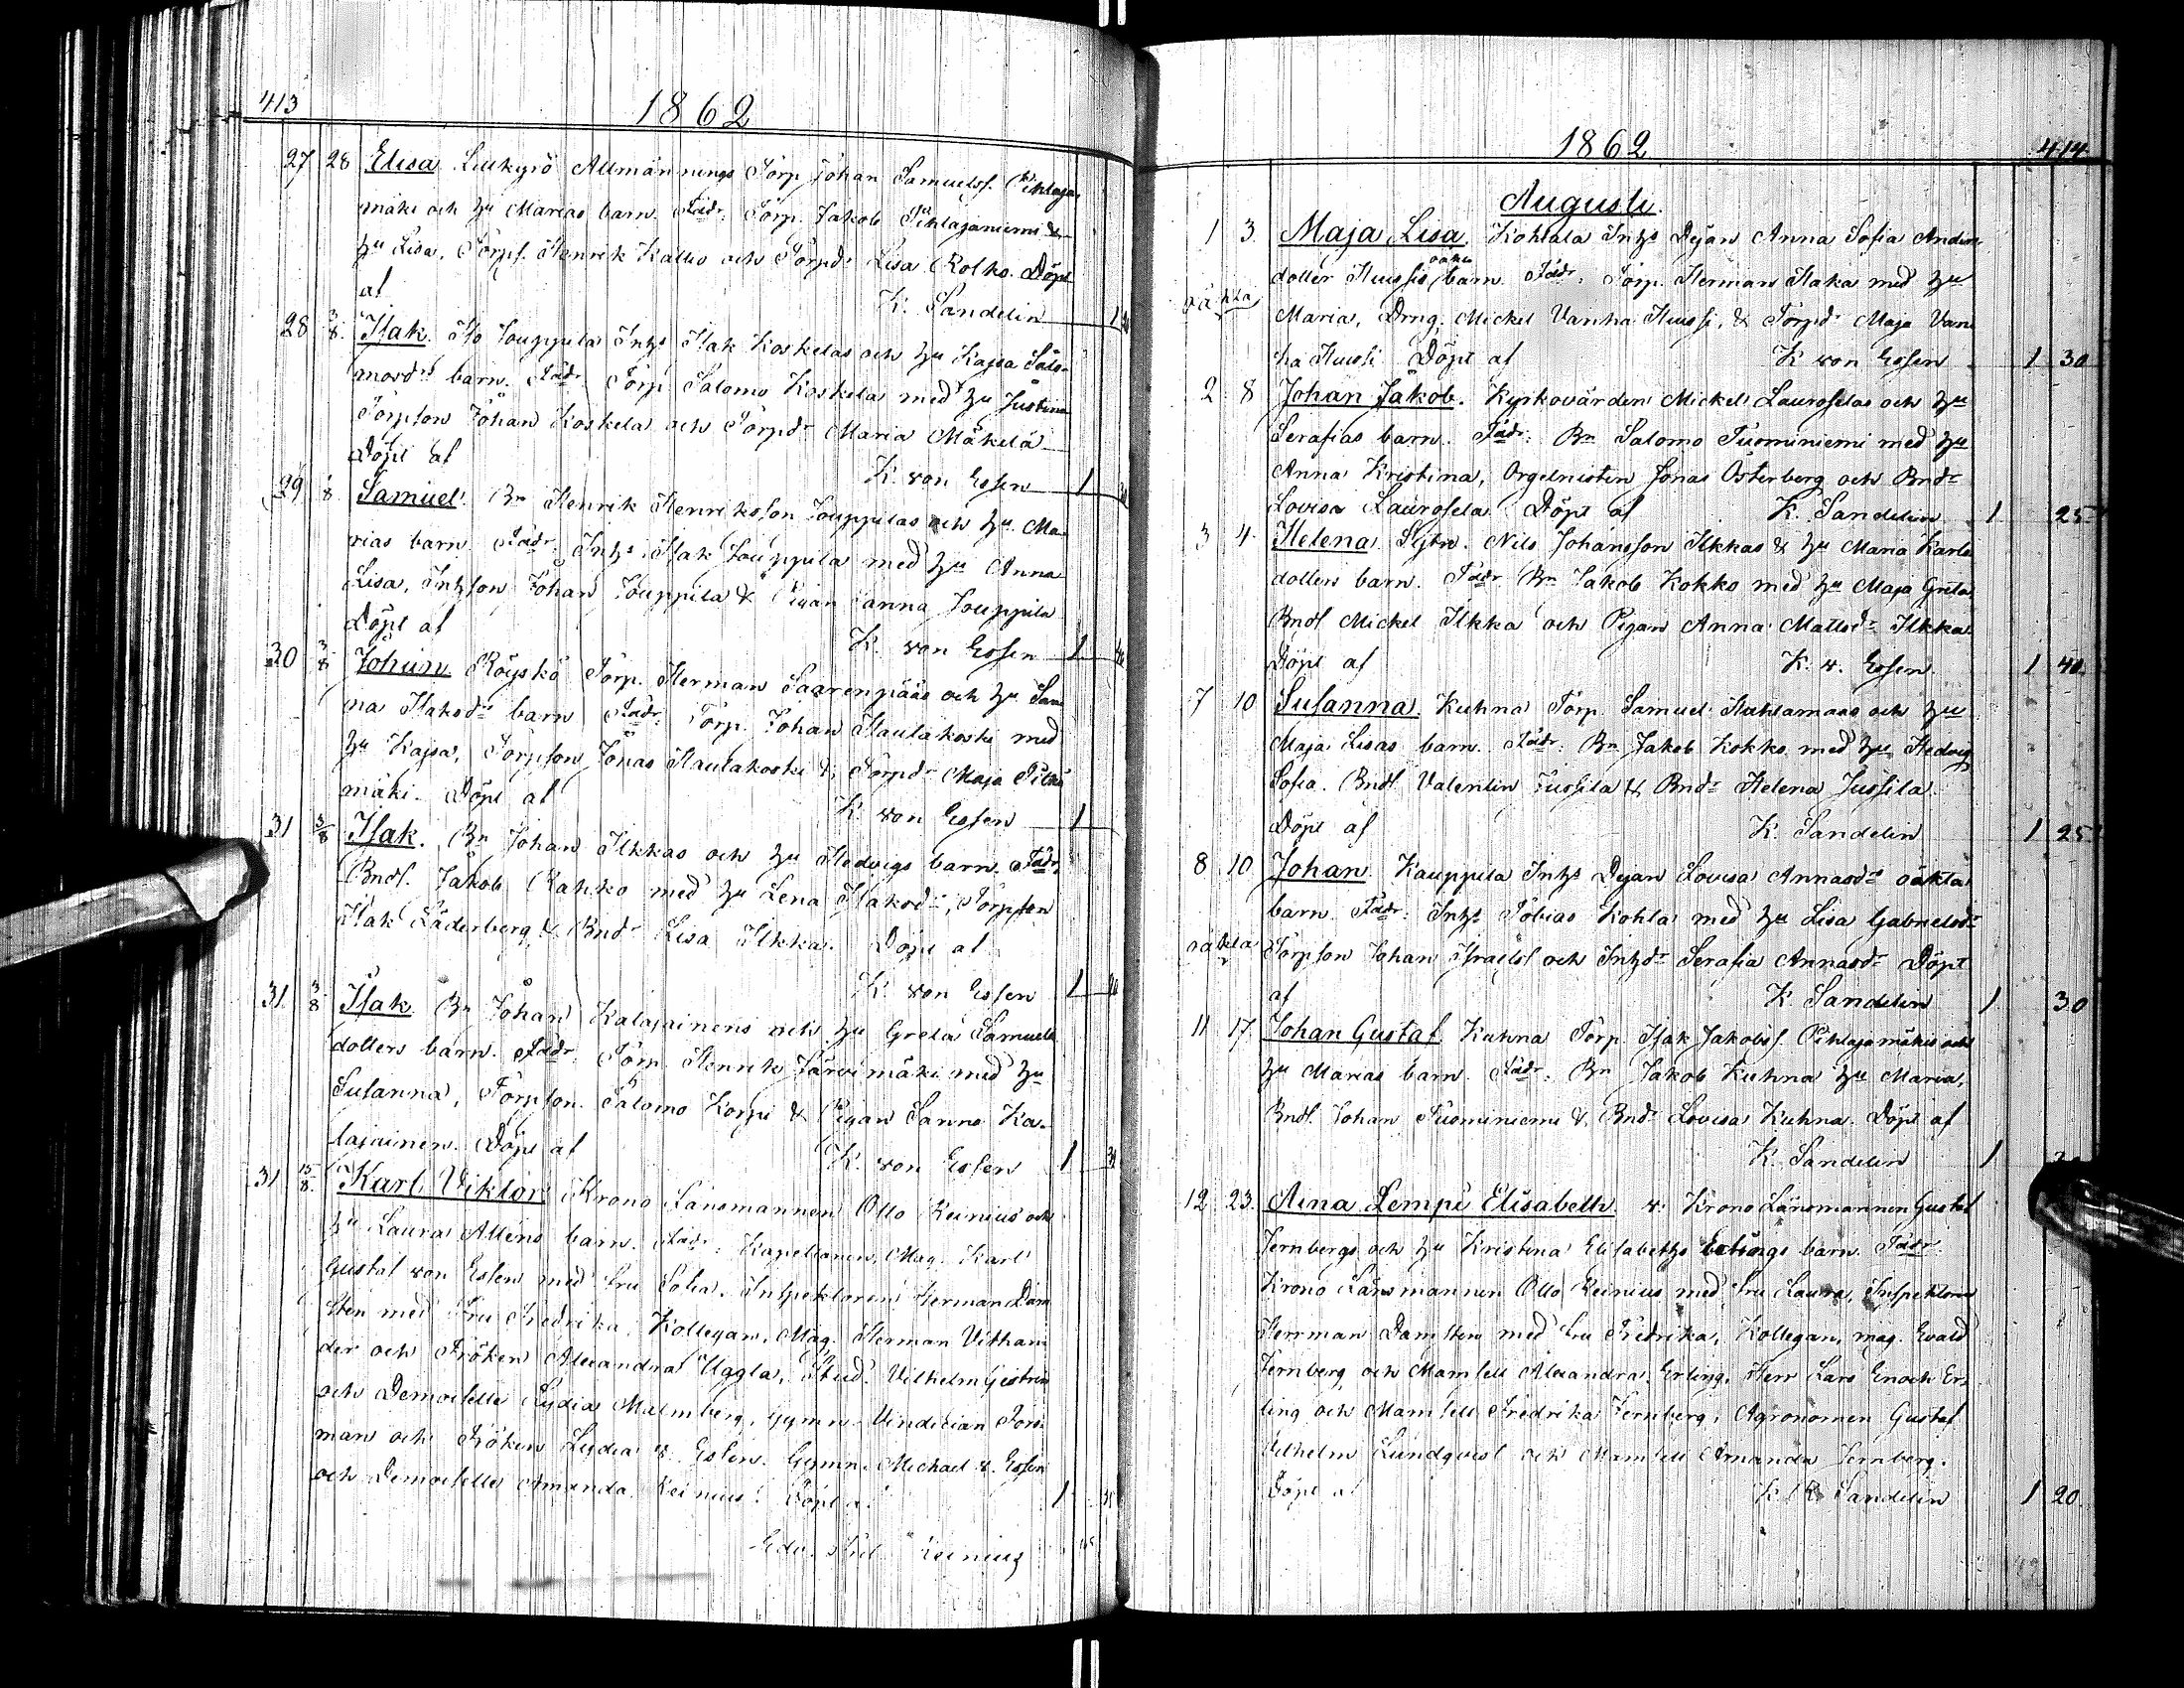 413
1862
27 28 Elisa Lillkyrö Allmännings Torp Johan Samuelss. Pihlaja
mäki och hu Marias barn. Fadr: Torp. Jakob Pihlajaniemi &
hu Lisa, Torps. Henrik Kallio och Torpdr Lisa Rolko. Döpt
af K. Sandelin 1
28 3/8 Isak. Iso Jouppila Inhs Isak Koskelas och hu Kajsa Salo-
mosdrs barn. Fadr: Torp Salomo Koskela med hu Justina
Torpson Johan Koskela och Torpdr Maria Mäkelä
Döpt af K. von Essen 1
29 8 Samuel. Bn Henrik Henriksson Jouppilas och hu Ma-
rias barn. Fadr: Inhs Isak Jouppila med hu Anna
Lisa, Inhson Johan Jouppila & Pigan Sanna Jouppila
Döpt af K. von Essen 1
30 3/8 Johan Röyskö Torp. Herman Saarenpääs och hu San
na Isaksdrs barn Fadr: Torp. Johan Hautakoski med
hu Kajsa, Torpson Jonas Hautakoski & Torpdr Maja
mäki. Döpt af K. von Essen 1
31 3/8 Isak. Bn Johan Ilkkas och hu Hedvigs barn. Fadr.
Bnds. Jakob Rahko med hu Lena Isaksdr, Torpson
Isak Läderberg & Bndr Lisa Ilkka. Döpt af
K. von Essen 1
31 3/8 Isak. Bn Johan Kalajainens och hu Greta Samuels
dotters barn. Fadr: Torp Henrik Järvimäki med hu
Susanna, Torpson. Salomo Korpi & Pigan Sanna Ka-
lajainen. Döpt af K. von Essen 1
31 15/8 Karl Viktor Krono Länsmannen Otto Reinius och
hu Laura Alléns barn. Fadr: Kapellanen, Mag. Karl
Gustaf von Essen med Fru Sofia. Inspektoren Herman Dam
sten med Fru Fredrika. Kollegan, Mag. Herman Vitkan
der och Fröken Alexandra Uggla, Stud. Vilhelm
och Demoiselle Lydia Malmberg, Gymn. Vindician Fors
man och Fröken Lydia v. Essen. Gymn. Michael v. Essen
och Demoiselle Amanda Reinius. Döpt af 1
Reinius
1862
414
Augusti.
1 3 Maja Lisa. Kohtala Inhs Pigan Anna Sofia Anders
oäkta
dotter Huissis barn. Fadr: Torp. Herman Haka med hu
oäkta Maria, Drng. Mickel Vanha Huissi, & Torpdr Maja Van
ha Huissi Döpt af K von Essen 1 30
2 8 Johan Jakob. Kyrkovärden Mickel Lauroselas och hu
Serafias barn. Fadr: Bn Salomo Tuominiemi med hu
Anna Kristina, Orgelnisten Jonas Österberg och Bndr
Lovisa Laurosela. Döpt af K. Sandelin 1 25
3 4 Helena. Sytn. Nils Johansson Ilkkas & hu Maria Karls
dotters barn. Fadr Bn Jakob Kokko med hu Maja Greta
Bnds Mickel Ilkka och Pigan Anna Mattsdr Ilkka
Döpt af K. v. Essen. 1 40
7 10 Susanna. Kuhna Torp. Samuel Huhtamaas och hu
Maja Lisas barn. Fadr: Bn Jakob Kokko med hu Hedvig
Sofia. Bnds Valentin Jussila & Bndr Helena Jussila
Döpt af K. Sandelin 1 25
8 10 Johan. Kauppila Inhs Pigan Lovisa Annasdrs oäkta
barn. Fadr: Inhs Tobias Kohla med hu Lisa Gabrielsdr
oäkta Torpson Johan Israelss och Inhdr Serafia Annasdr Döpt
af K Sandelin 1 30
11 17 Johan Gustaf. Kuhna Torp. Isak Jakobss. Pihlajamäkis och
hu Marias barn. Fadr: Bn Jakob Kuhna hu Maria,
Bnds. Johan Tuominiemi & Bndr Lovisa Kuhna. Döpt af
K. Sandelin 1
12 23. Aina Lempi Elisabeth v. Krono Länsmannen Gustaf
Jernbergs och hu Kristina Elisabeths Erlings barn. Fadr.
Krono Länsmannen Otto Reinius med Fru Laura, Inspektoren
Herrman Damsten med Fru Fredrika, Kollegan, mag. Evald
Jernberg och Mamsell Alexandra Erling. Herr Lars Enoch Er-
ling och Mamsell Fredrika Jernberg, Agronomen Gustaf
Vilhelm Lundqvist och Mamsell Amanda Jernberg.
Döpt af K. R. Sandelin 1 20